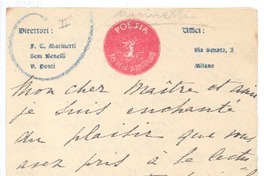 Marinetti
II
Direttori :
F. T. Marinetti
Sem Benelli
V. Ponti
POESIA
Uffici :
Via Senato, 2
Milano
Mon cher Maître et ami
je suis enchanté
du plaisir que vous
avez pris à la lectu-